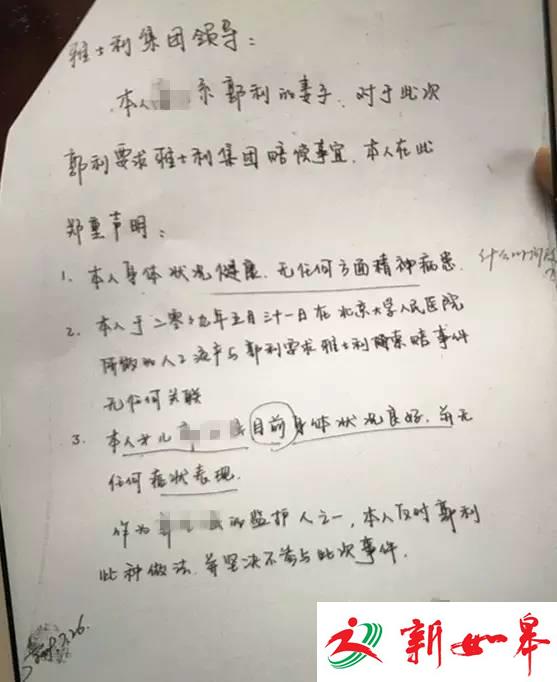 雅士利集团领导：
本人 系郭利的妻子，对于此次
郭利要求雅士利集团赔偿事宜，本人在此
郑重声明：
1. 本人身体状况健康，无任何方面精神病患。
什么时间
2. 本人于二零零九年五月三十一日在北京大学人民医院
所做的人工流产与郭利要求雅士利 索赔事件
无任何关联
3. 本人女儿 目前身体状况良好，并无
任何症状表现。
作为 的监护人之一，本人反对郭利
此种做法，并坚决不参与此次事件。
7.26.
新如皋